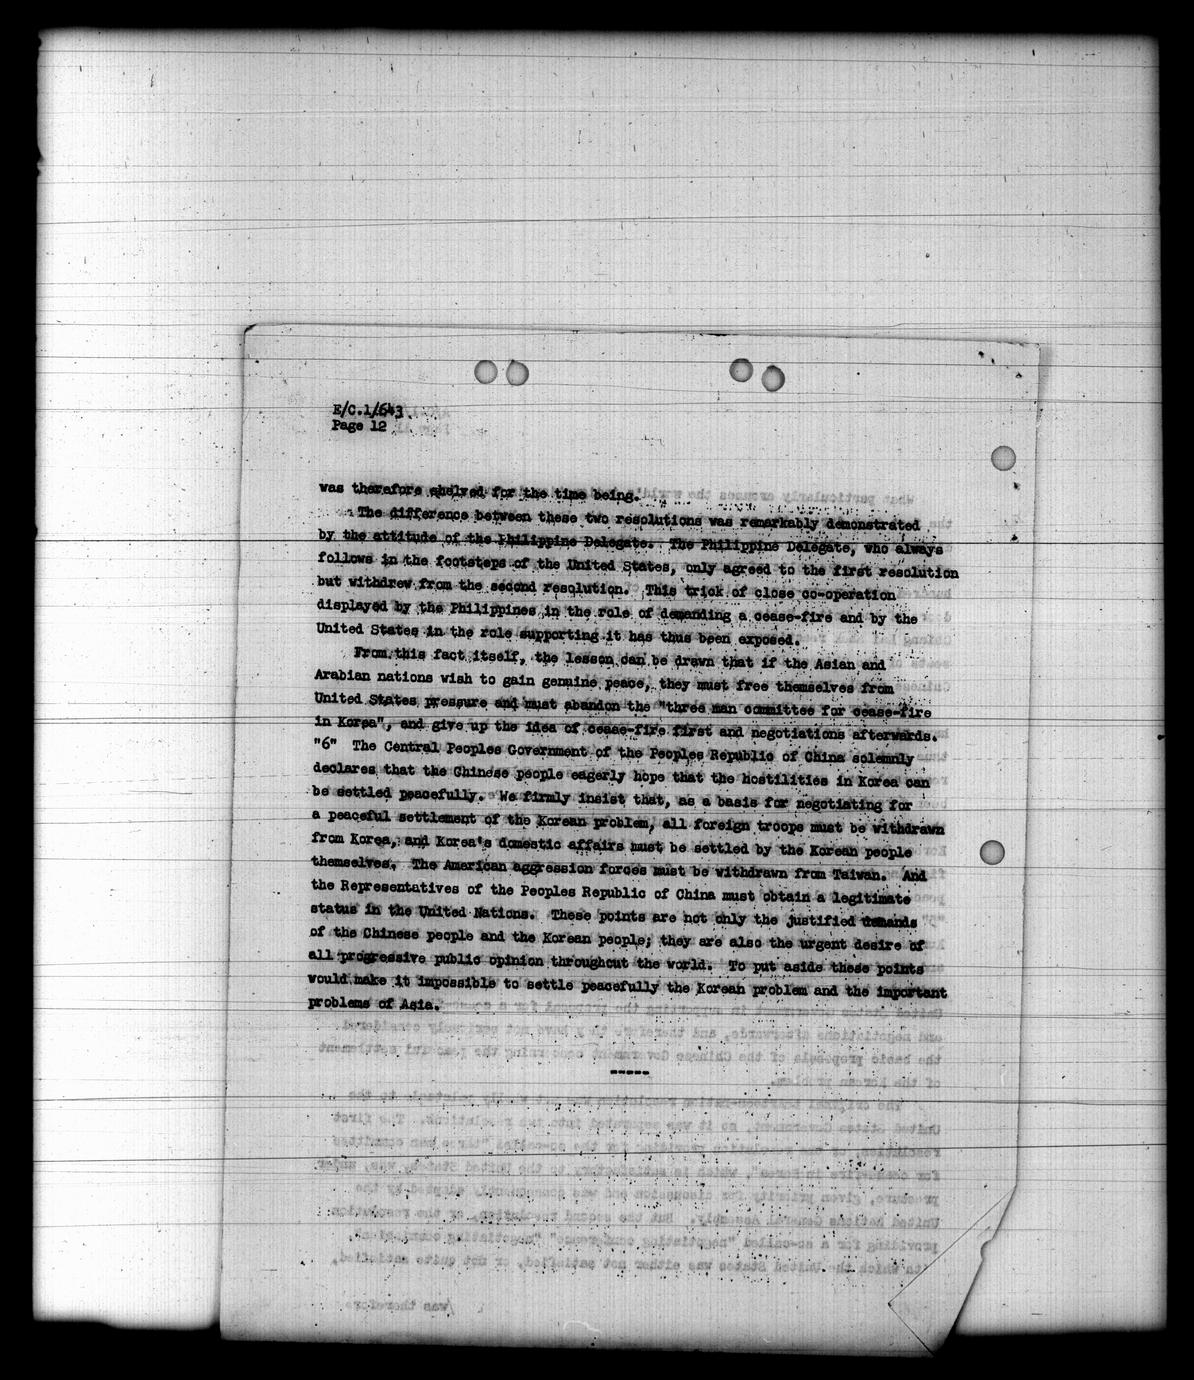 E/C.1/643
Page 12
was therefore shelved for the time being.
The difference between these two resolutions was remarkably demonstrated
by the attitude of the Philippine Delegate. The Philippine Delegate, who always
follows in the footsteps of the United States, only agreed to the first resolution
but withdrew from the second resolution. This trick of close co-operation
displayed by the Philippines in the role of demanding a cease-fire and by the
United States in the role supporting it has thus been exposed.
From this fact itself, the lesson can be drawn that if the Asian and
Arabian nations wish to gain genuine peace, they must free themselves from
United States pressure and must abandon the "three man committee for cease-fire
in Korea", and give up the idea of cease-fire first and negotiations afterwards.
"6" The Central Peoples Government of the Peoples Republic of China solemnly
declares that the Chinese people eagerly hope that the hostilities in Korea can
be settled peacefully. We firmly insist that, as a basis for negotiating for
a peaceful settlement of the Korean problem, all foreign troops must be withdrawn
from Korea, and Korea's domestic affairs must be settled by the Korean people
themselves. The American aggression forces must be withdrawn from Taiwan. And
the Representatives of the Peoples Republic of China must obtain a legitimate
status in the United Nations. These points are not only the justified demands
of the Chinese people and the Korean people; they are also the urgent desire of
all progressive public opinion throughout the world. To put aside these points
would make it impossible to settle peacefully the Korean problem and the important
problems of Asia.
-----